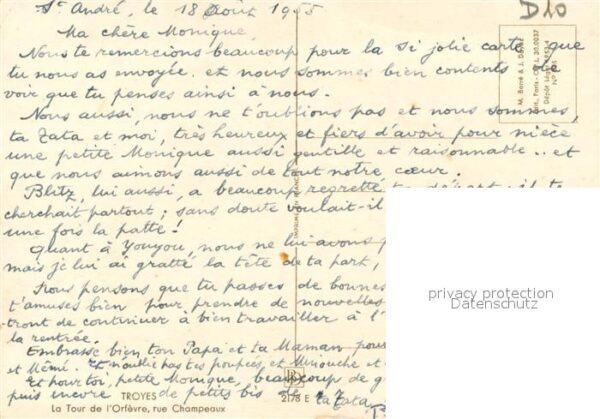 St André, le 18 Août 1955
D10
Ma chère Monique,
Nous te remercions beaucoup pour la si jolie carte que
tu nous as envoyée. et nous sommes bien contents de
voir que tu penses ainsi à nous.
Nous aussi, nous ne t'oublions pas et nous sommes,
ta Tata et moi, très heureux et fiers d'avoir pour nièce
une petite Monique aussi gentille et raisonnable.. et
que nous aimons aussi de tout notre cœur.
Blitz, lui aussi, a beaucoup regretté
cherchait partout ; sans doute voulait-il
une fois la patte !
Quant à Youyou, nous ne lui avons
mais je lui ai gratté la tête de ta part,
Nous pensons que tu passes de bonnes
t'amuses bien pour prendre de nouvelles
tront de continuer à bien travailler à l'
la rentrée.
Embrasse bien ton Papa et ta Maman pour
et Mémé. Et n'oublie pas tes poupées et Minouche et
Et pour toi, petite Monique, beaucoup de
puis encore de petits bis de ta Tata
TROYES
2178 E
La Tour de l'Orfèvre, rue Champeaux
privacy protection
Datenschutz